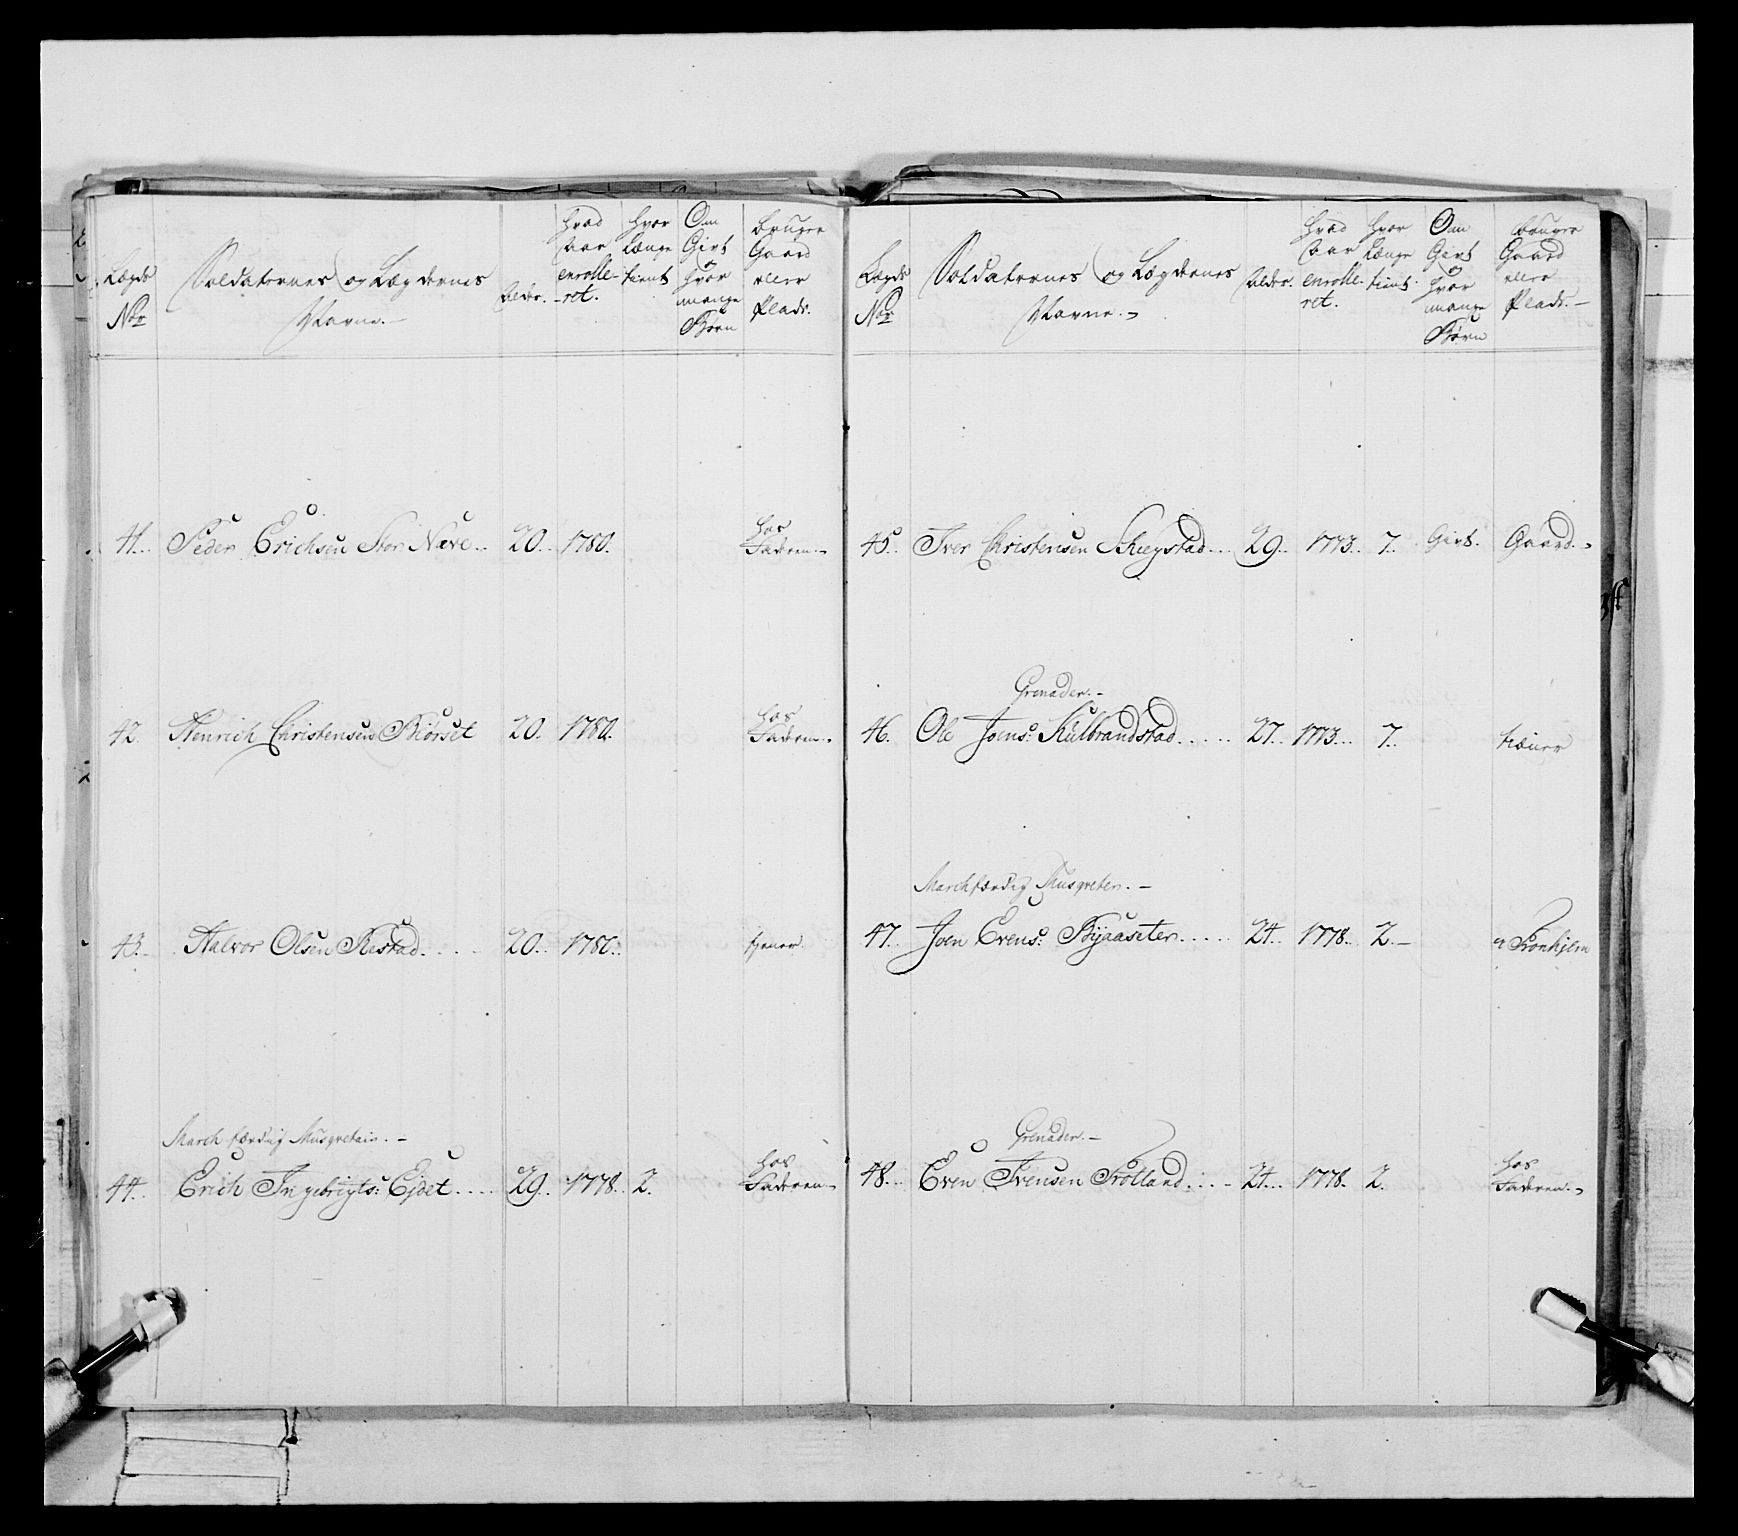 Lægds No
Soldaternes og Lægdernes Navne.
Alder.
hvad aar enrolle-ret.
hvor længe tient
Om Givt og hvor mange Børn
bruger Gaard eller Plads.
41. Peder Erichsen Stor Næve 20. 1780. hos Faderen
42. Henrich Christensen Börset 20. 1780. hos Faderen
43. Halvor Olsen Restad 20. 1780. tjener
March færdig Musqvetair.
44. Erich Ingebrigts: Ejdet 29. 1778. 2. hos Faderen
Lægds No
Soldaternes og Lægdernes Navne.
Alder.
hvad aar enrolle-ret.
hvor længe tient.
Om Givt og hvor mange Börn
bruger Gaard eller Plads.
45. Iver Christensen 29. 1773. 7. Givt. Gaard.
Grenader.
46. Ole Joens: Kulbrandstad 27. 1773. 7. tiæner
Marchfærdig Musqveter.
47. Joen Evens: Byaaseter 24. 1778. 2. Tronhjem
Grenader.
48. Even Ivensen Trötland 24. 1778. 2. hos Faderen.